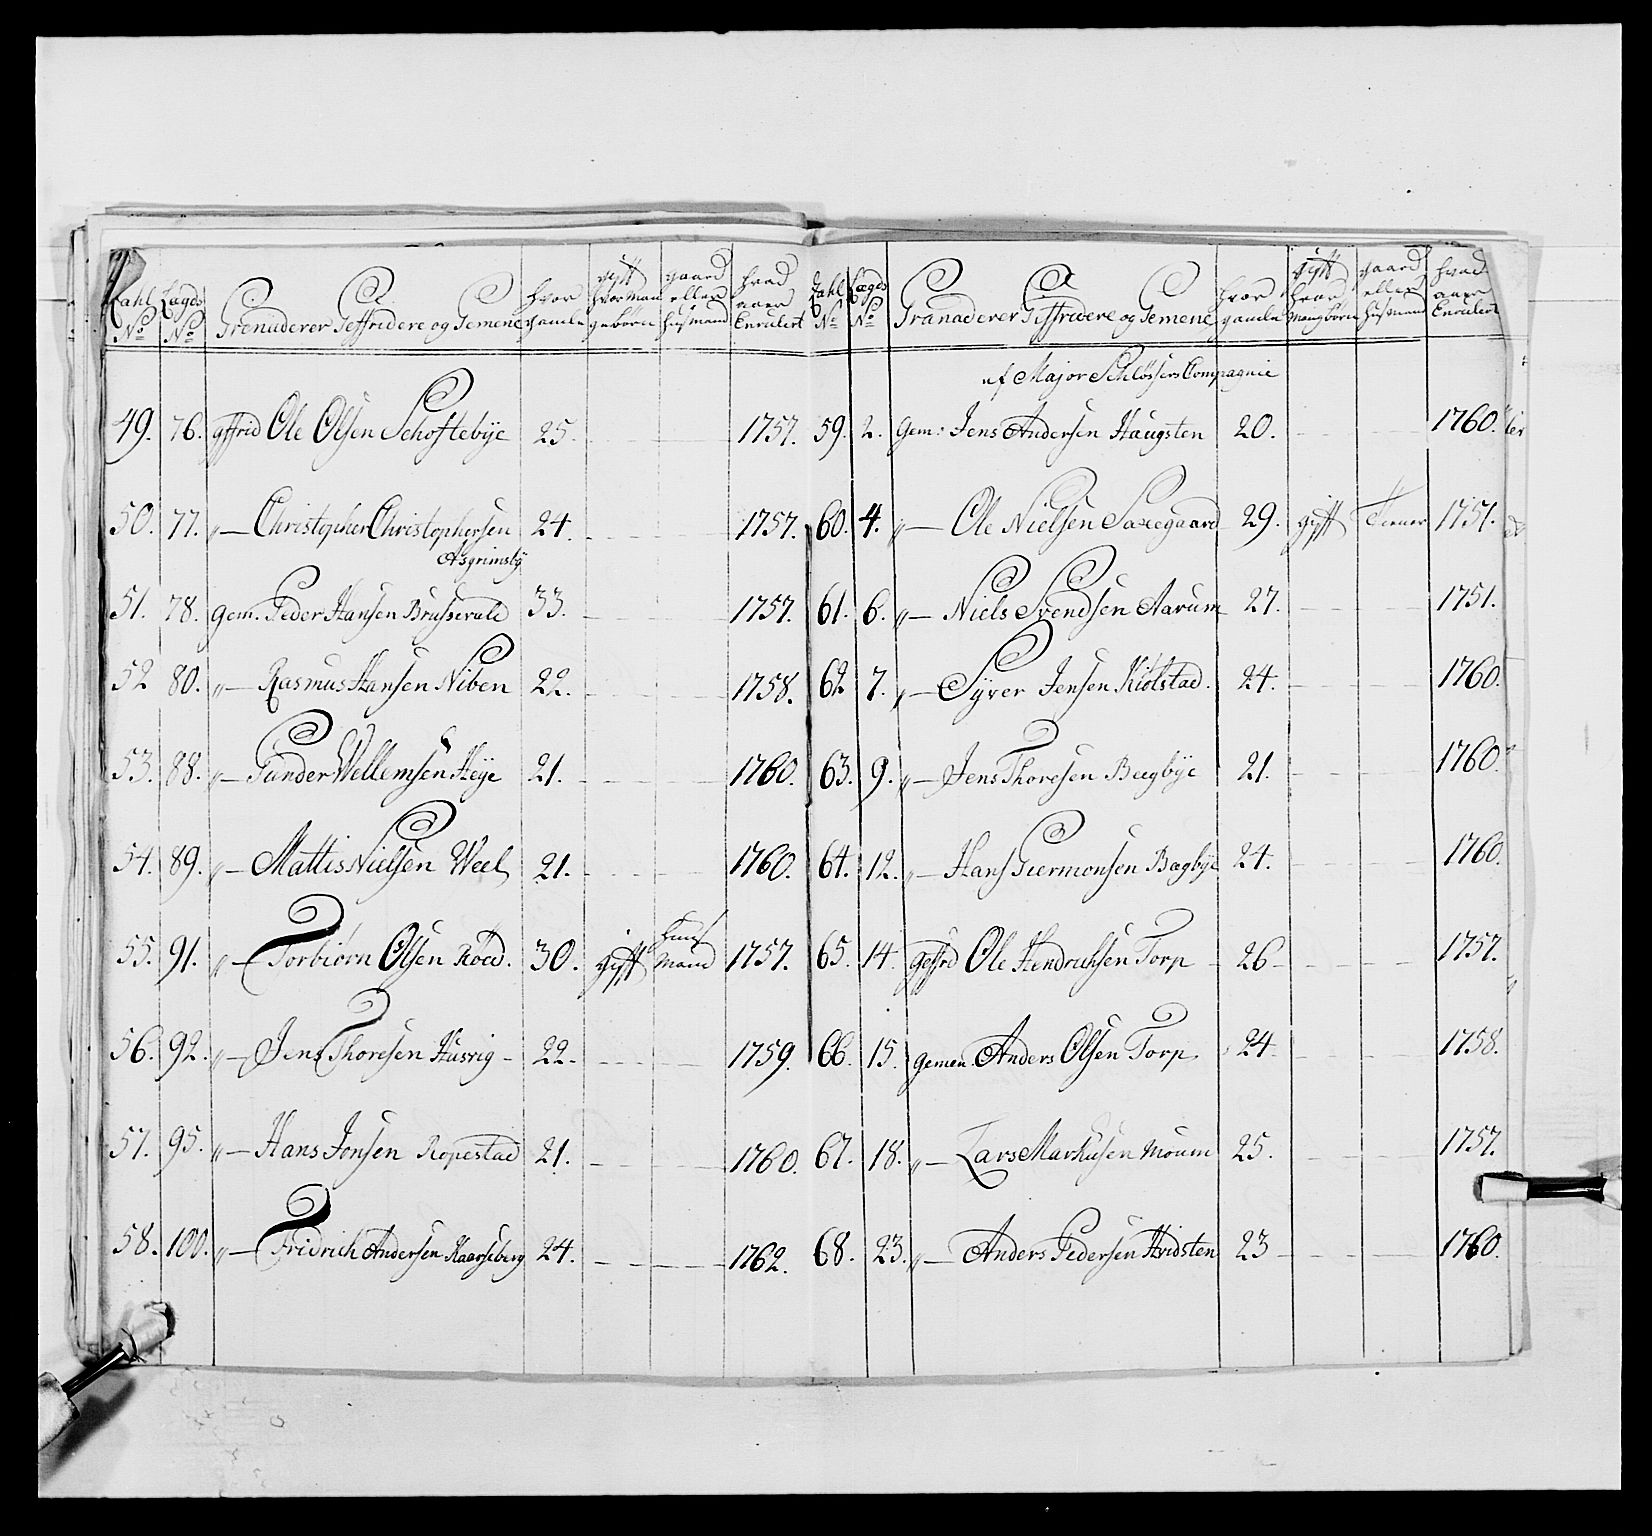 Zahl No | Lægds No | Grenaderer Geffridere og Gemene | hvor gamle | gyft hvor mange børn | gaard eller husmand | hvad aaer Enrulert
49. | 76. | gffrid Ole Olsen Schoftebÿe | 25. | | | 1757.
50. | 77. | „— Christopher Christophersen | 24. | | | 1757.
Asgrimsbÿ
51. | 78. | gem. Peder Hansen Brusserald | 33. | | | 1757.
52 | 80. | „— Rasmus Hansen Niben | 22. | | | 1758.
53. | 88. | „— Gunder Wellemsen Heÿe | 21. | | | 1760.
54. | 89. | „— Mattis Nielsen Weel | 21. | | | 1760.
55. | 91. | „— Torbiörn Olsen Röed. | 30. | gyft | Huus Mand | 1757.
56. | 92. | „— Jens Thoresen Husvig | 22. | | | 1759.
57. | 95. | „— Hans Jonsen Ropestad | 21. | | | 1760.
58. | 100. | „— Fridrich Andersen Kaarseberg | 24. | | | 1762.
Zahl No | Lægds No | Granaderer Giffridere og Gemene | hvor gamle | gyft hvor mang børn | gaard eller husmand | hvad aaer Enrulert
af Major Schlössers Compagnie
59. | 2. | Gem: Jens Andersen Haugsten | 20. | | | 1760.
60. | 4. | „— Ole Nielsen Saxegaard | 29. | gyft | Tiener | 1751.
61. | 6. | „— Niels Svendsen Aarum | 27. | | | 1751.
62 | 7. | „— Sÿver Jensen Kiölstad. | 24. | | | 1760.
63. | 9. | „— Jens Thoresen Bugbÿe | 21. | | | 1760.
64. | 12. | „— Hans Giermonsen Bagbÿe | 24. | | | 1760.
65. | 14. | geffrd Ole Hendrichsen Torp | 26 | | | 1757.
66. | 15. | gemen. Anders Olsen Torp | 24. | | | 1758.
67. | 18. | „— Lars Markusen Moum | 25. | | | 1757.
68. | 23. | „— Anders Pedersen Hvidsten | 23 | | | 1760.